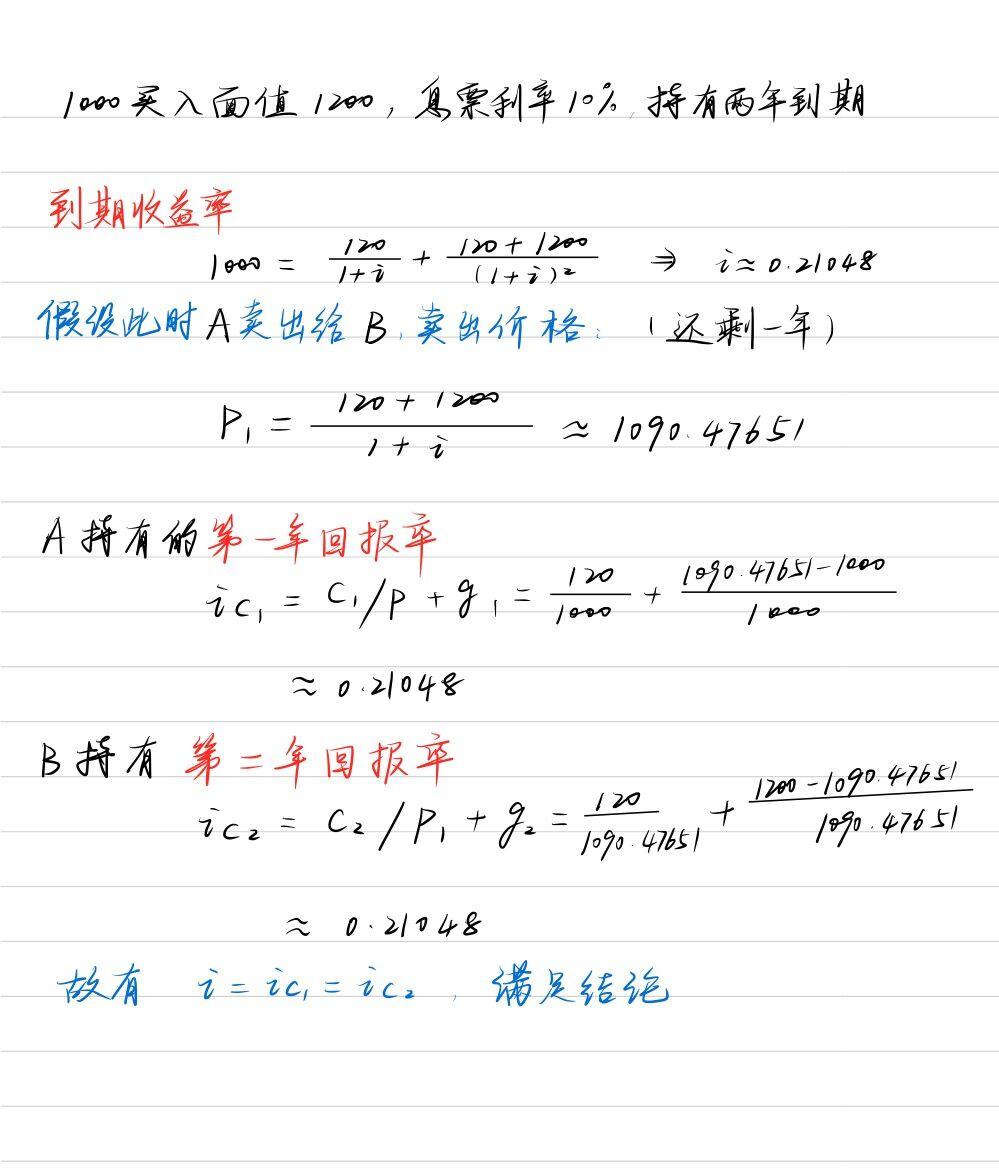 1000买入面值1200，息票利率10%，持有两年到期
到期收益率
1000 = 120/(1+i) + (120+1200)/(1+i)² ⇒ i≈0.21048
假设此时A卖出给B，卖出价格：（还剩一年）
P₁ = (120+1200)/(1+i) ≈ 1090.47651
A持有的第一年回报率
ic₁ = C₁/P + g₁ = 120/1000 + (1090.47651-1000)/1000
≈ 0.21048
B持有 第二年回报率
ic₂ = C₂/P₁ + g₂ = 120/1090.47651 + (1200-1090.47651)/1090.47651
≈ 0.21048
故有 i = ic₁ = ic₂，满足结论